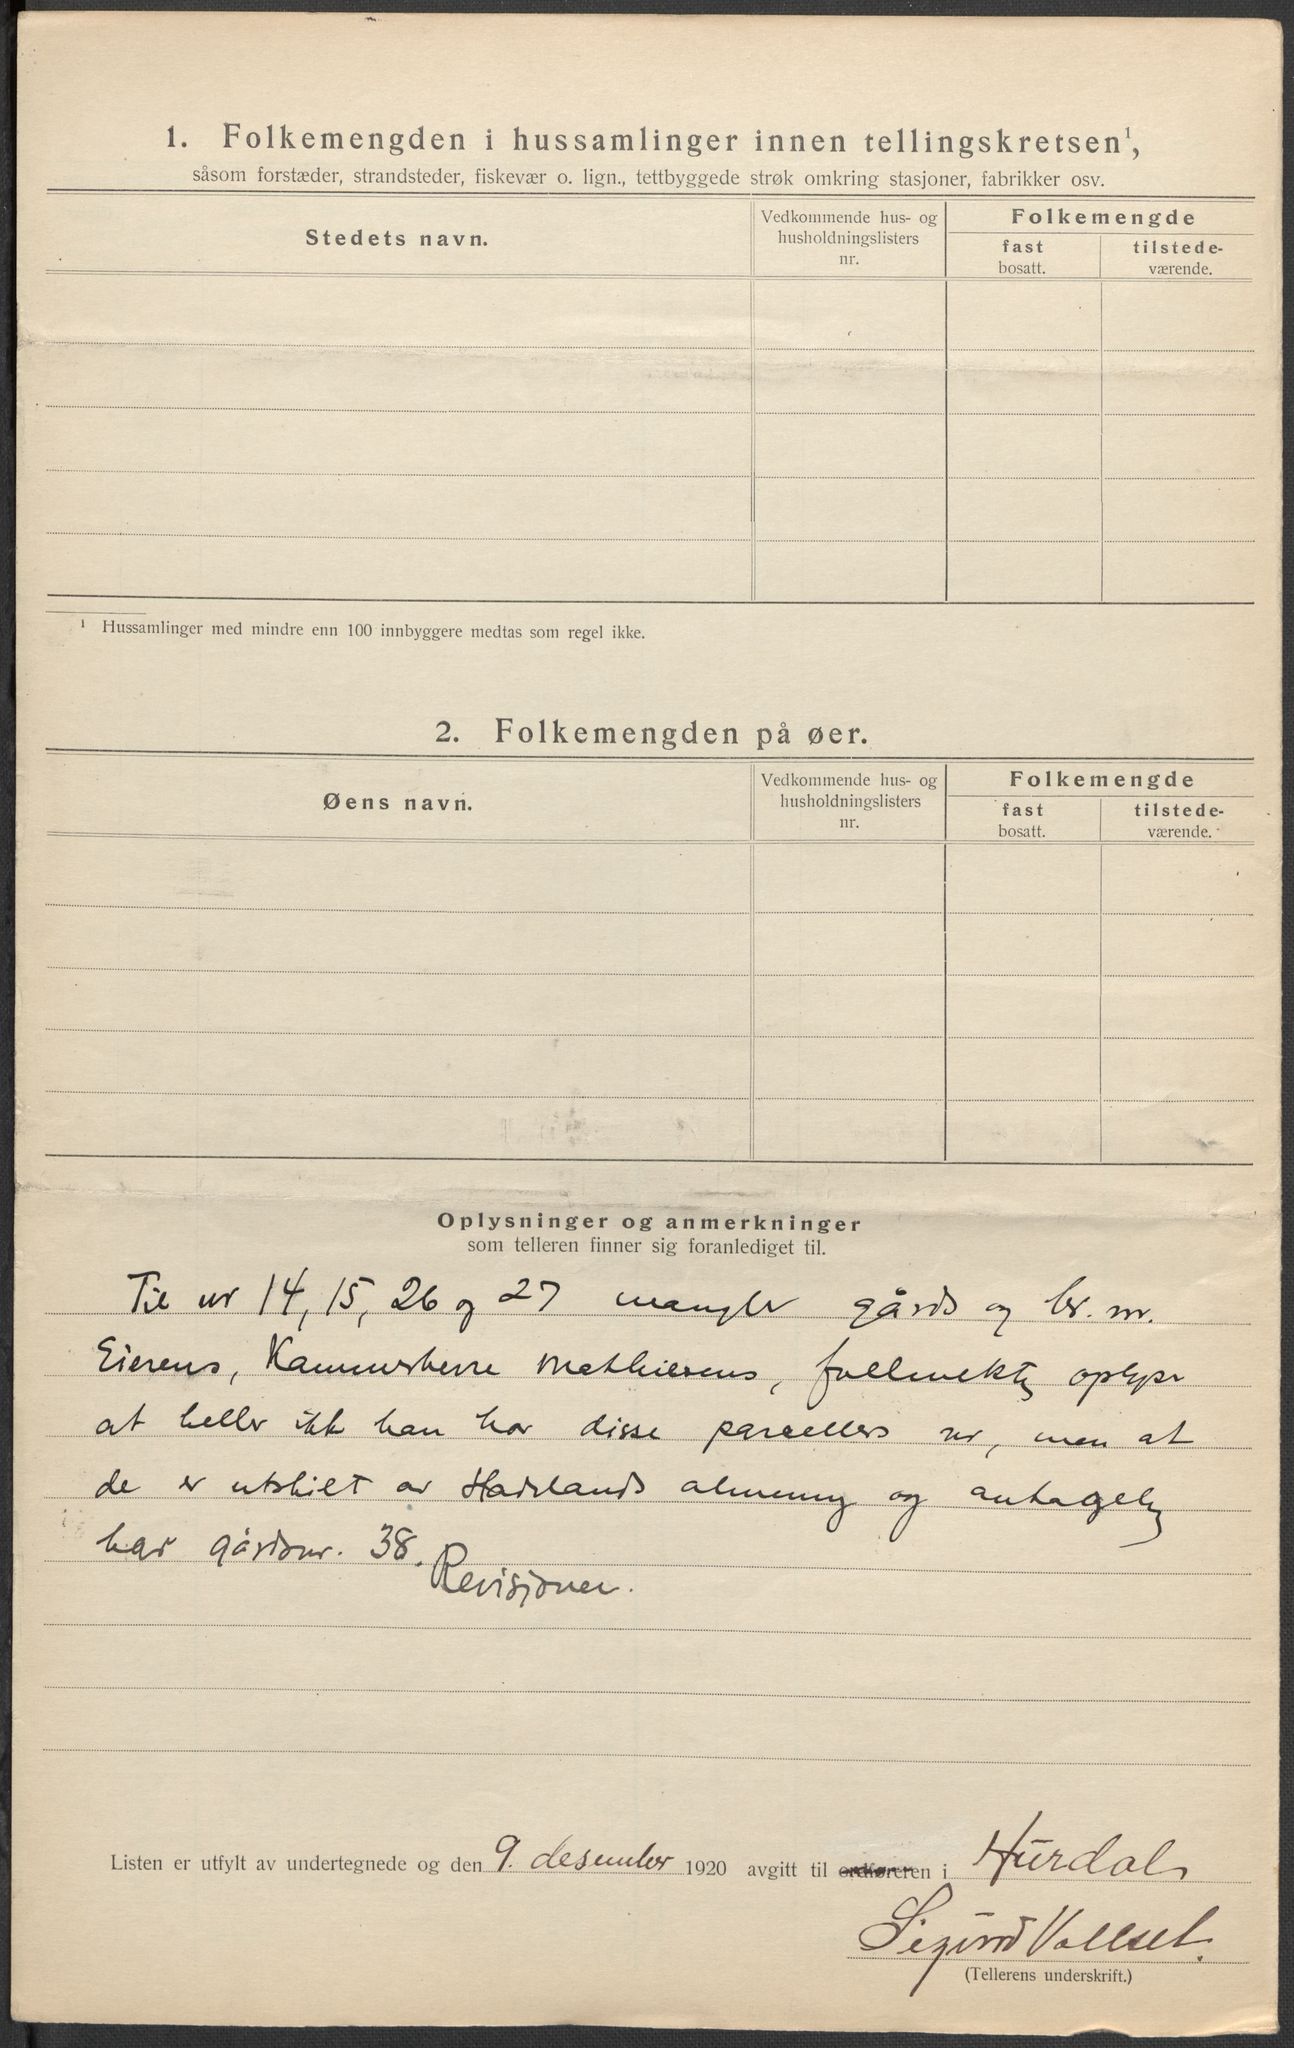 1. Folkemengden i hussamlinger innen tellingskretsen¹,
såsom forstæder, strandsteder, fiskevær o. lign., tettbyggede strøk omkring stasjoner, fabrikker osv.
Stedets navn.
Vedkommende hus- og
husholdningslisters
nr.
Folkemengde
fast
bosatt.
tilstede-
værende.
¹ Hussamlinger med mindre enn 100 innbyggere medtas som regel ikke.
2. Folkemengden på øer.
Øens navn.
Vedkommende hus- og
husholdningslisters
nr.
Folkemengde
fast
bosatt.
tilstede-
værende.
Oplysninger og anmerkninger
som telleren finner sig foranlediget til.
Til nr 14, 15, 26 og 27 mangler gårds og br. nr.
Eierens, Kammerherre Mathiesens, fullmektig oplyser
at heller ikke han har disse parcellers nr, men at
de er utskilt av Hadelands almenning og antagelig
har gårdsnr. 38.
Revisjonen.
Listen er utfylt av undertegnede og den 9. desember 1920 avgitt til ordføreren i Hurdal
Sigurd Vollset.
(Tellerens underskrift.)